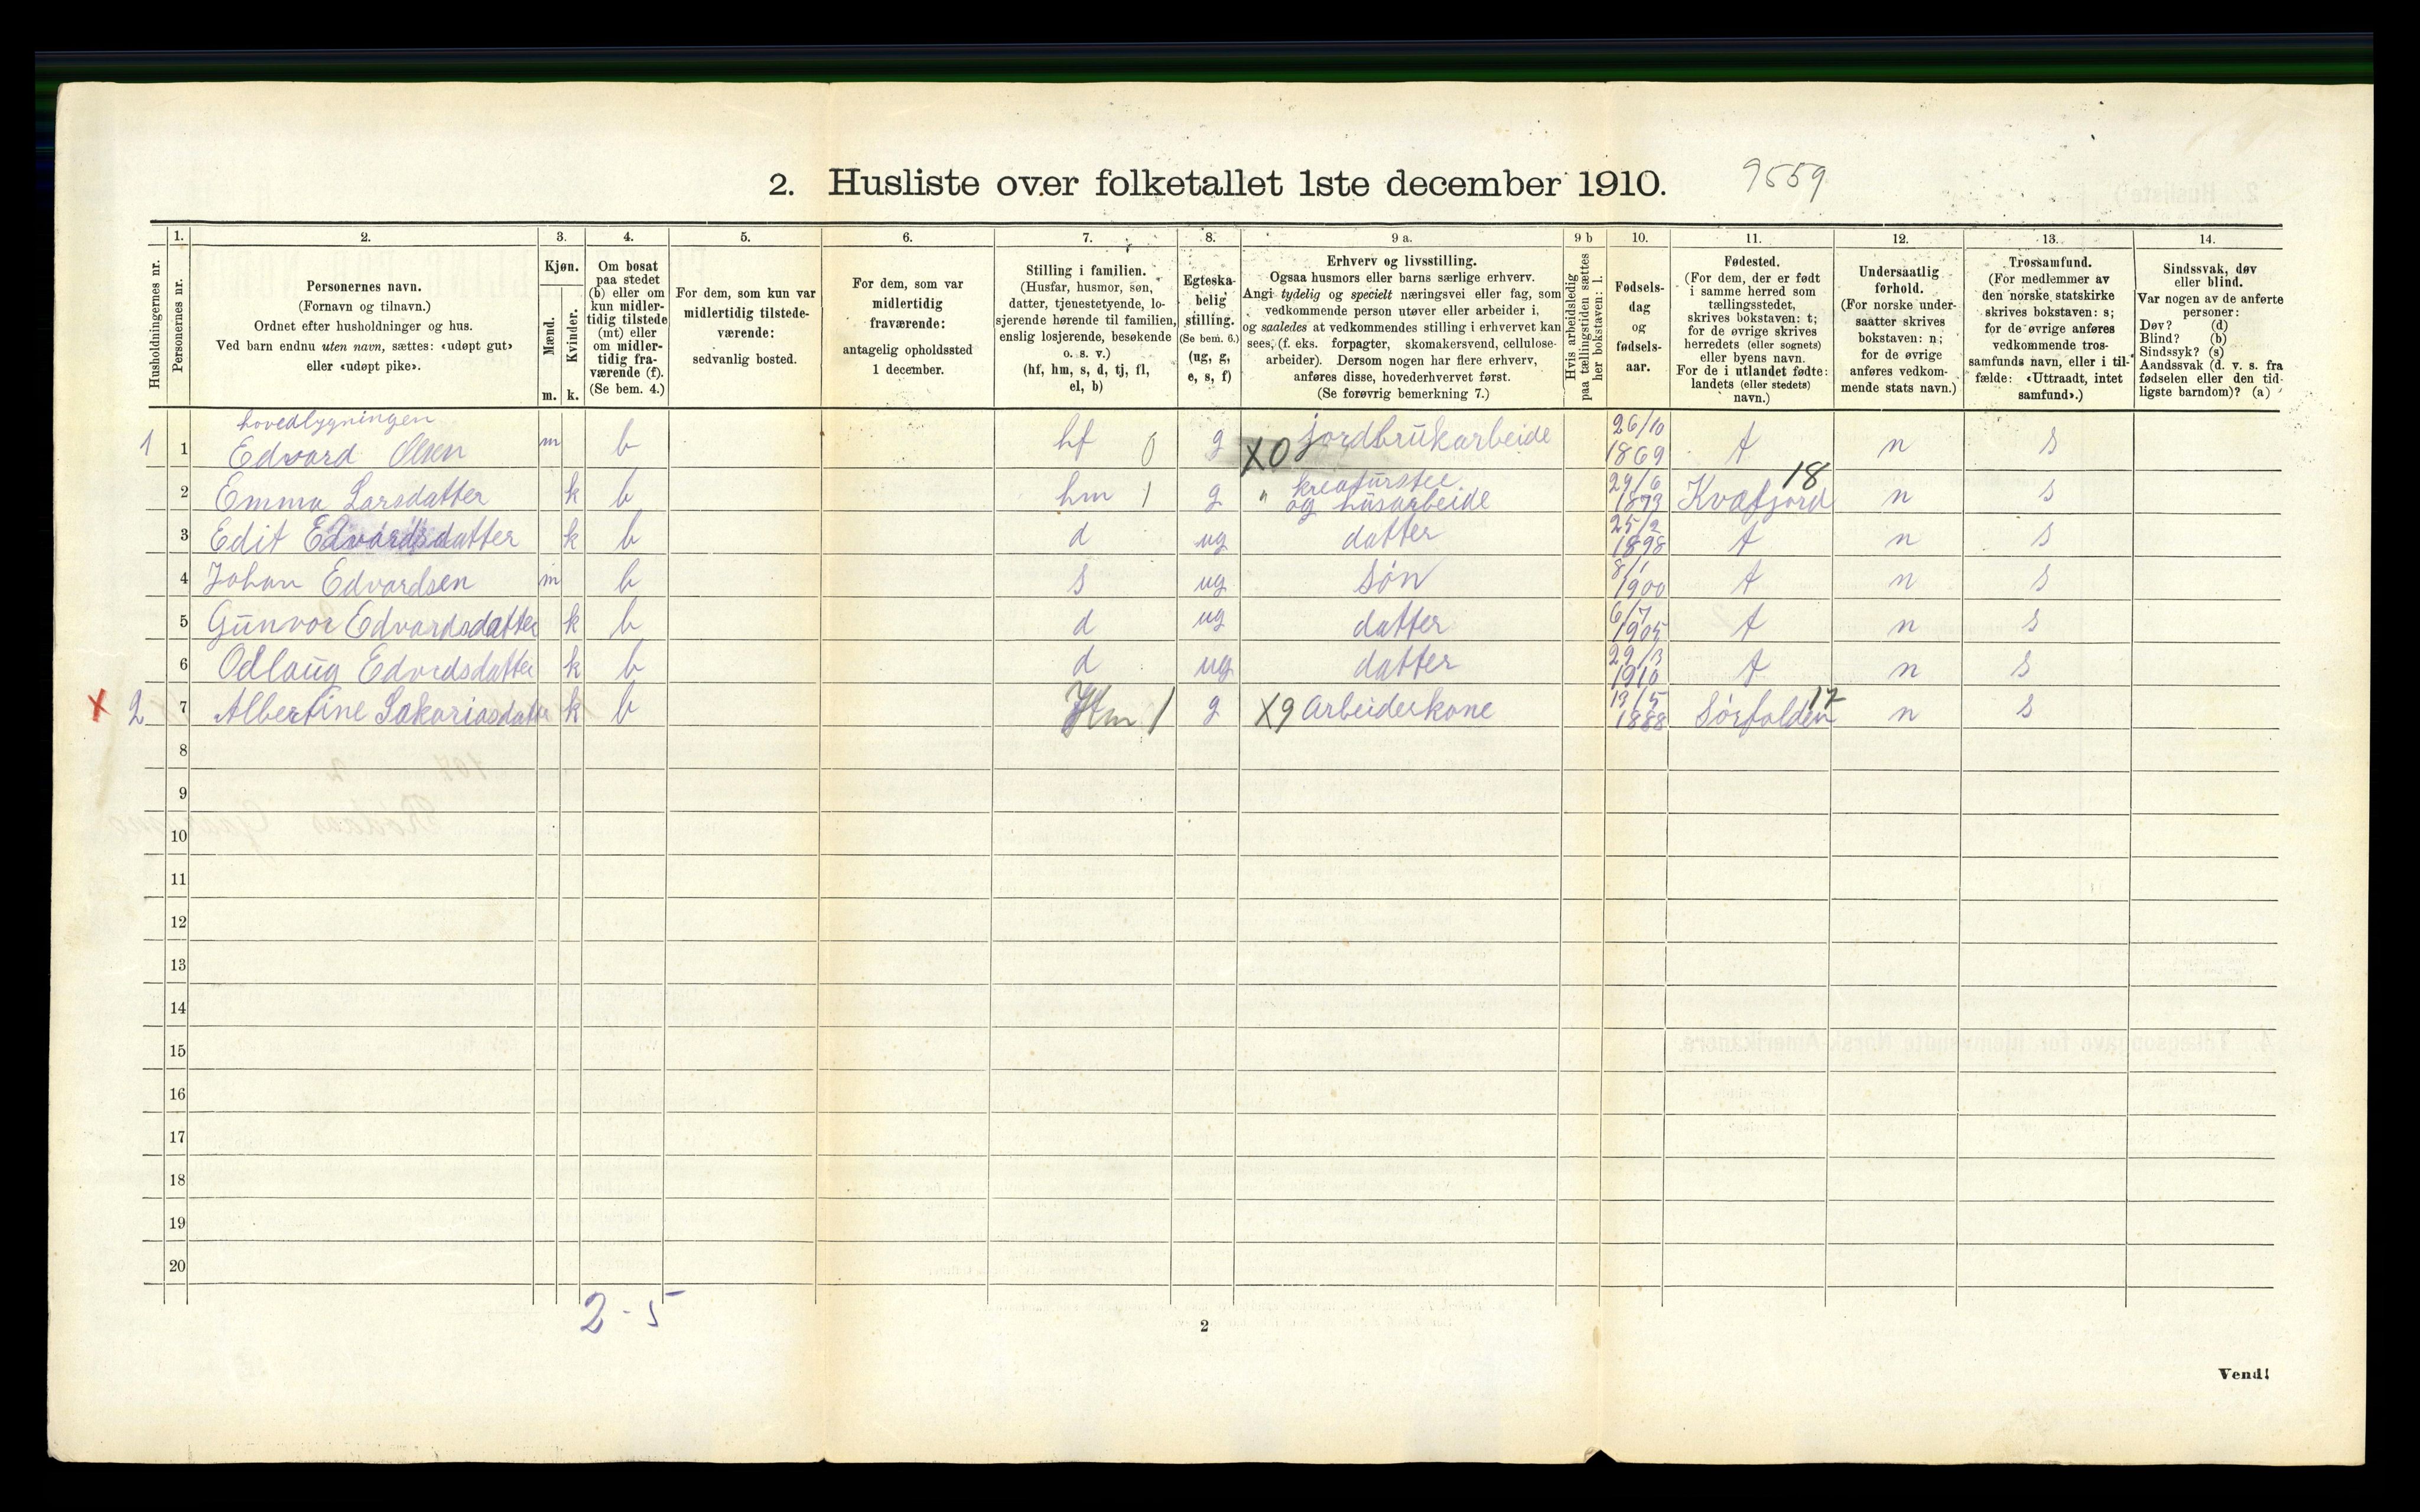 2. Husliste over folketallet 1ste december 1910. 9559
Husholdningernes nr.
1. Personernes nr.
2. Personernes navn.
(Fornavn og tilnavn.)
Ordnet efter husholdninger og hus.
Ved barn endnu uten navn, sættes: «udøpt gut»
eller «udøpt pike».
3. Kjøn.
Mænd. m.
Kvinder. k.
4. Om bosat
paa stedet
(b) eller om
kun midler-
tidig tilstede
(mt) eller
om midler-
tidig fra-
værende (f).
(Se bem. 4.)
5. For dem, som kun var
midlertidig tilstede-
værende:
sedvanlig bosted.
6. For dem, som var
midlertidig
fraværende:
antagelig opholdssted
1 december.
7. Stilling i familien.
(Husfar, husmor, søn,
datter, tjenestetyende, lo-
sjerende hørende til familien,
enslig losjerende, besøkende
o. s. v.)
(hf, hm, s, d, tj, fl,
el, b)
8. Egteska-
belig
stilling.
(Se bem. 6.)
(ug, g,
e, s, f)
9 a. Erhverv og livsstilling.
Ogsaa husmors eller barns særlige erhverv.
Angi tydelig og specielt næringsvei eller fag, som
vedkommende person utøver eller arbeider i,
og saaledes at vedkommendes stilling i erhvervet kan
sees, (f. eks. forpagter, skomakersvend, cellulose-
arbeider). Dersom nogen har flere erhverv,
anføres disse, hovederhvervet først.
(Se forøvrig bemerkning 7.)
9 b Hvis arbeidsledig
paa tællingstiden sættes
her bokstaven: l.
10. Fødsels-
dag
og
fødsels-
aar.
11. Fødested.
(For dem, der er født
i samme herred som
tællingsstedet,
skrives bokstaven: t;
for de øvrige skrives
herredets (eller sognets)
eller byens navn.
For de i utlandet fødte:
landets (eller stedets)
navn.)
12. Undersaatlig
forhold.
(For norske under-
saatter skrives
bokstaven: n;
for de øvrige
anføres vedkom-
mende stats navn.)
13. Trossamfund.
(For medlemmer av
den norske statskirke
skrives bokstaven: s;
for de øvrige anføres
vedkommende tros-
samfunds navn, eller i til-
fælde: «Uttraadt, intet
samfund».)
14. Sindssvak, døv
eller blind.
Var nogen av de anførte
personer:
Døv? (d)
Blind? (b)
Sindssyk? (s)
Aandssvak (d. v. s. fra
fødselen eller den tid-
ligste barndom)? (a)
hovedbygningen
1 1 Edvard Olsen m b hf 0 g X0 jordbrukarbeide 26/10 1869 t n s
2 Emma Larsdatter k b hm 1 g " kreaturstee og husarbeide 29/6 1873 Kvæfjord 18 n s
3 Edit Edvardsdatter k b d ug datter 25/2 1898 t n s
4 Johan Edvardsen m b s ug søn 8/1 1900 t n s
5 Gunvor Edvardsdatter k b d ug datter 6/7 1905 t n s
6 Odlaug Edvrdsdatter k b d ug datter 29/3 1910 t n s
X 2 7 Albertine Sakariasdatter k b Hm 1 g X9 Arbeiderkone 13/5 1888 Sørfolden 17 n s
8
9
10
11
12
13
14
15
16
17
18
19
20
2 - 5
2
Vend!